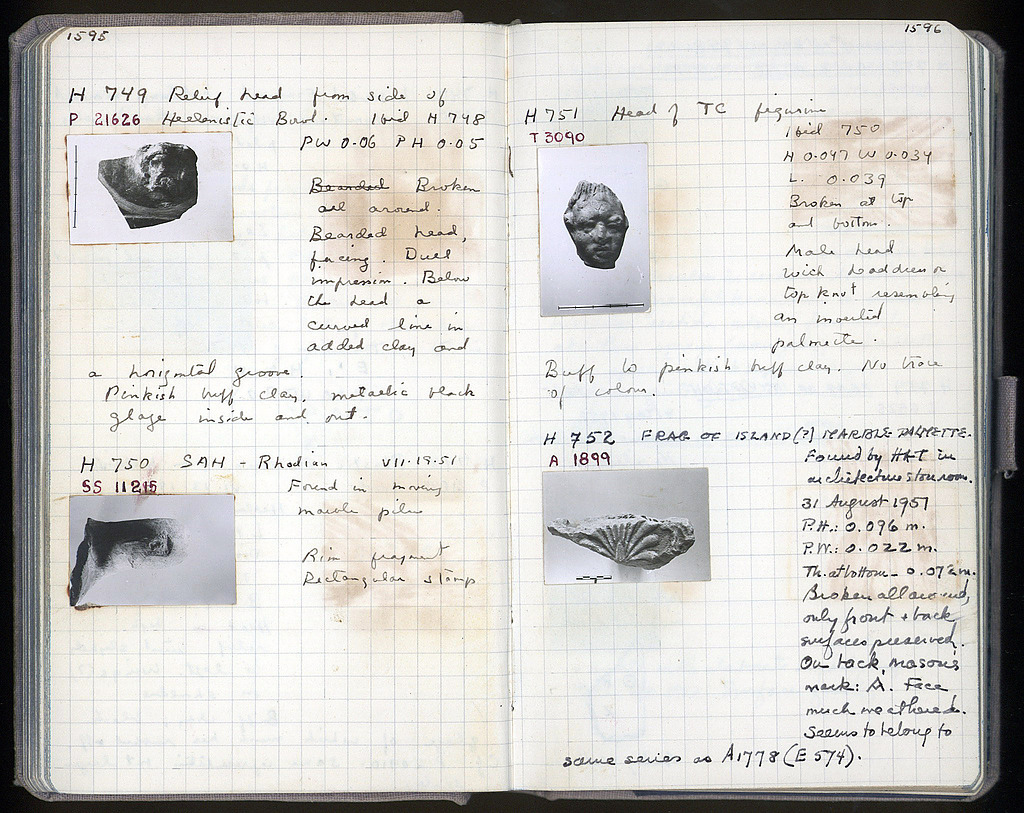 1595
H 749 Relief head from side of
P 21626 Hellenistic Bowl. Ibid H 748
PW 0.06 PH 0.05
Bearded Broken
all around.
Bearded head,
facing. Dull
impression. Below
the head a
curved line in
added clay and
a horizontal groove.
Pinkish buff clay, metallic black
glaze inside and out.
H 750 SAH - Rhodian VII.19.51
SS 11215
Found in moving
marble piles
Rim fragment
Rectangular stamp
1596
H 751 Head of TC figurine
T 3090
Ibid 750
H 0.047 W 0.034
L. 0.039
Broken at top
and bottom.
Male head
with headdress or
top knot resembling
an inverted
palmette.
Buff to pinkish buff clay. No trace
of colour.
H 752 FRAG OF ISLAND(?) MARBLE PALMETTE.
A 1899
Found by HAT in
architecture storeroom.
31 August 1951
P.H.: 0.096 m.
P.W.: 0.022 m.
Th. at bottom - 0.07 m.
Broken all around,
only front + back
surfaces preserved.
On back, mason's
mark: A. Face
much weathered.
Seems to belong to
same series as A1778 (E 574).